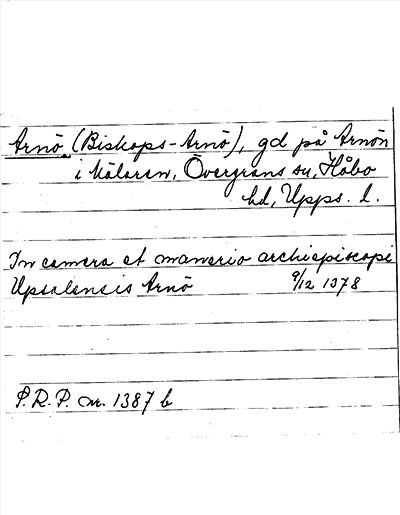 Arnö (Biskops-Arnö), gd på Arnön
i Mälaren, Övergrans sn, Håbo
hd, Upps. l.
In camera et manerio archiepiscopi
Upsalensis Arnö 9/12 1378
S.R.P. nr. 1387 b